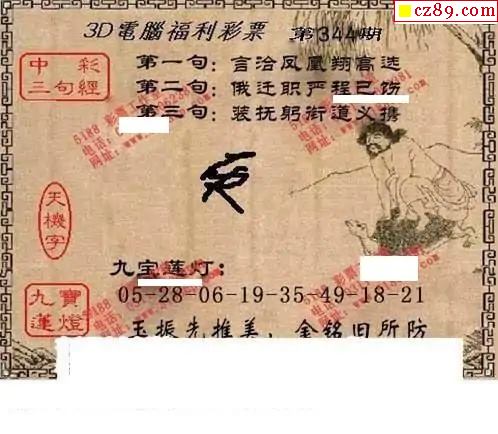 cz89.com
3D電腦福利彩票 第344期
中彩
三句經
第一句：言洽凤凰翔高选
第二句：俄迁职严程已饬
第三句：装抚躬街道义携
天機字
九宝莲灯：
九寶
蓮燈
05-28-06-19-35-49-18-21
玉振先推美，金铭旧所防